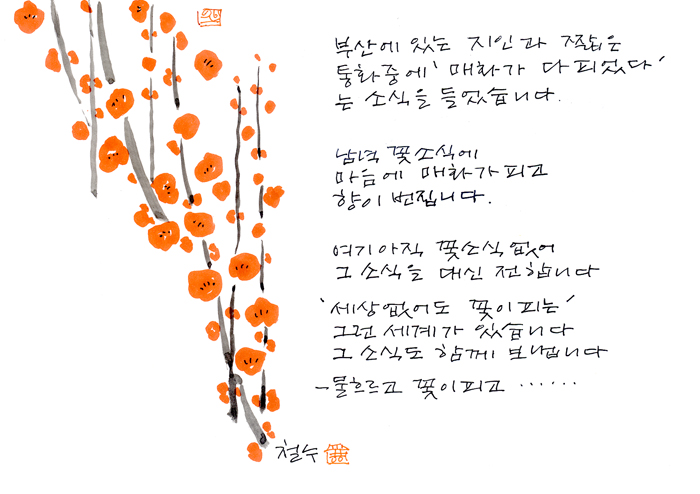 부산에 있는 지인과 짧은
통화중에 '매화가 다 피었다'
는 소식을 들었습니다.
남녘 꽃소식에
마음에 매화가 피고
향이 번집니다.
여기 아직 꽃소식 없어
그 소식을 대신 전합니다
'세상 없어도 꽃이 피는'
그런 세계가 있습니다
그 소식도 함께 보냅니다
-물흐르고 꽃이피고 ......
철수